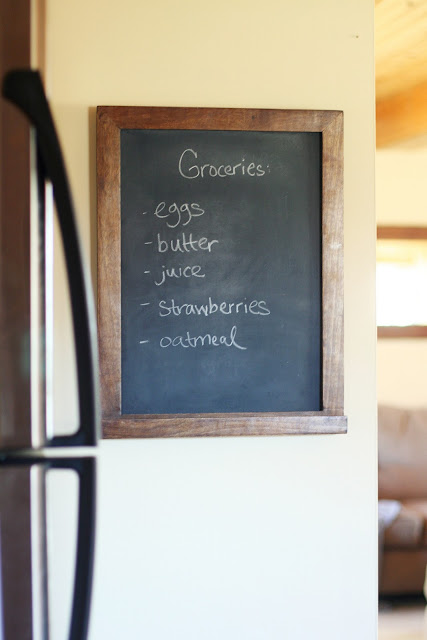 Groceries:
- eggs
- butter
- juice
- strawberries
- oatmeal